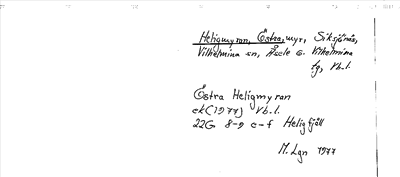 Heligmyran, Östra, myr, Siksjönäs,
Vilhelmina sn, Åsele o. Vilhelmina
tg, Vb.l.
Östra Heligmyran
ek(1977) Vb.l.
22G 8-9 c-f Heligfjäll
M. Lgn 1977